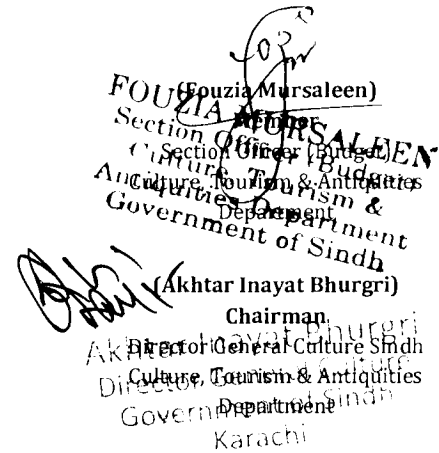 (Fouzia Mursaleen)
Member
Section Officer (Budget)
Culture, Tourism & Antiquities
Department
FOUZIA MURSALEEN
Section Officer (Budget)
Culture, Tourism &
Antiquities Department
Government of Sindh
(Akhtar Inayat Bhurgri)
Chairman
Director General Culture Sindh
Culture, Tourism & Antiquities
Department
Akhtar Inayat Bhurgri
Director General Culture
Government of Sindh
Karachi